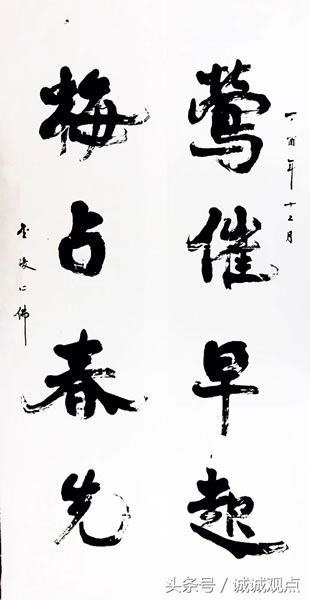 丁酉年十二月
鶯催早起
梅占春先
金陵 佛
头条号 / 诚诚观点